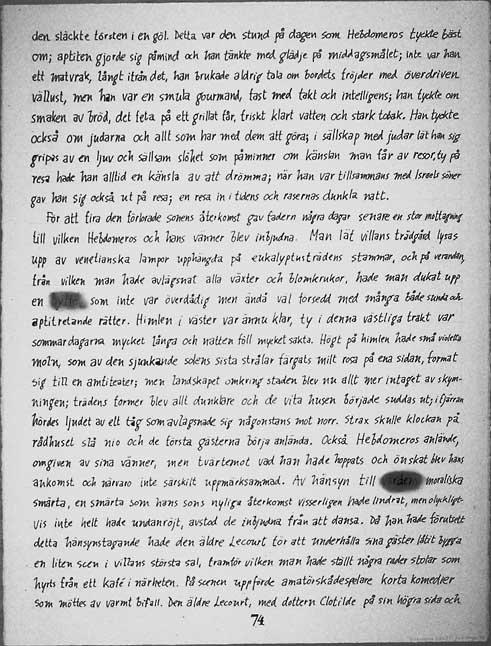 den släckte törsten i en göl. Detta var den stund på dagen som Hebdomeros tyckte bäst
om; aptiten gjorde sig påmind och han tänkte med glädje på middagsmålet; inte var han
ett matvrak, långt ifrån det, han brukade aldrig tala om bordets fröjder med överdriven
vällust, men han var en smula gourmand, fast med takt och intelligens; han tyckte om
smaken av bröd, det feta på ett grillat får, friskt klart vatten och stark tobak. Han tyckte
också om judarna och allt som har med dem att göra; i sällskap med judar lät han sig
gripas av en ljuv och sällsam slöhet som påminner om känslan man får av resor, ty på
resa hade han alltid en känsla av att drömma; när han var tillsammans med Israels söner
gav han sig också ut på resa; en resa in i tidens och rasernas dunkla natt.
För att fira den förlorade sonens återkomst gav fadern några dagar senare en stor mottagning
till vilken Hebdomeros och hans vänner blev inbjudna. Man lät villans trädgård lysas
upp av venetianska lampor upphängda på eukalyptusträdens stammar, och på verandan,
från vilken man hade avlägsnat alla växter och blomkrukor, hade man dukat upp
en som inte var överdådig men ändå väl försedd med många både sunda och
aptitretande rätter. Himlen i väster var ännu klar, ty i denna västliga trakt var
sommardagarna mycket långa och natten föll mycket sakta. Högt på himlen hade små violetta
moln, som av den sjunkande solens sista strålar färgats milt rosa på ena sidan, format
sig till en amfiteater; men landskapet omkring staden blev nu allt mer intaget av skym-
ningen; trädens former blev allt dunklare och de vita husen började suddas ut; i fjärran
hördes ljudet av ett tåg som avlägsnade sig någonstans mot norr. Strax skulle klockan på
rådhuset slå nio och de första gästerna börja anlända. Också Hebdomeros anlände,
omgiven av sina vänner, men tvärtemot vad han hade hoppats och önskat blev hans
ankomst och närvaro inte särskilt uppmärksammad. Av hänsyn till moraliska
smärta, en smärta som hans sons nyliga återkomst visserligen hade lindrat, men olycklígt-
vis inte helt hade undanröjt, avstod de inbjudna från att dansa. Då han hade förutsett
detta hänsynstagande hade den äldre Lecourt för att underhålla sina gäster låtit bygga
en liten scen i villans största sal, framför vilken man hade ställt några rader stolar som
hyrts från ett kafé i närheten. På scenen uppförde amatörskådespelare korta komedier
som möttes av varmt bifall. Den äldre Lecourt, med dottern Clotilde på sin högra sida och
74